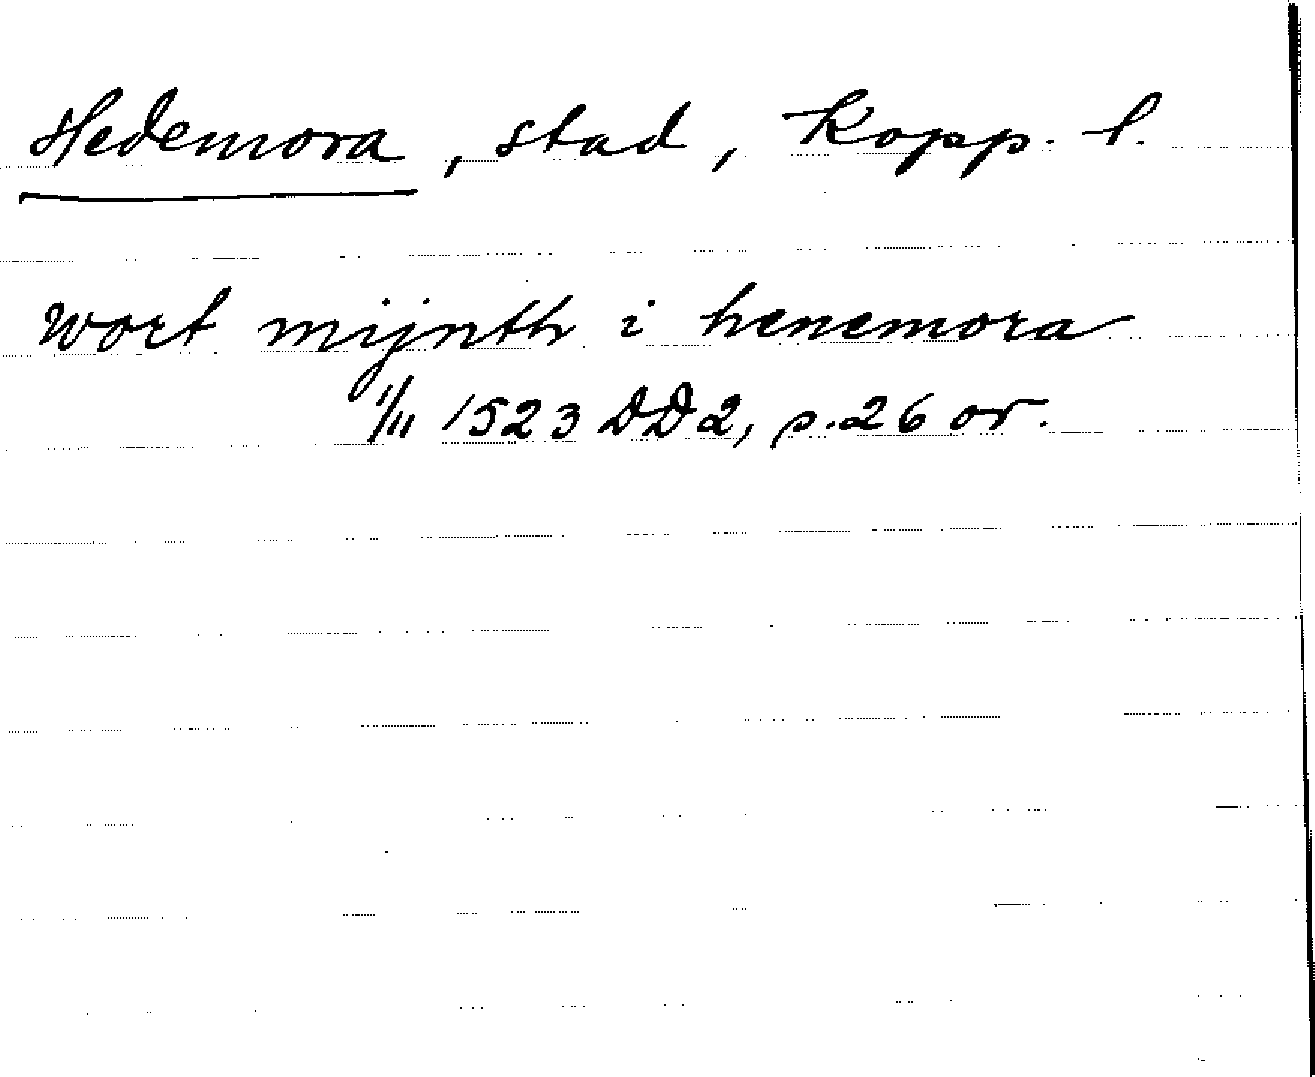 Hedemora, stad, Kopp. l.
wort mijnth i henemora
1/11 1523 DD2, s. 26 or.